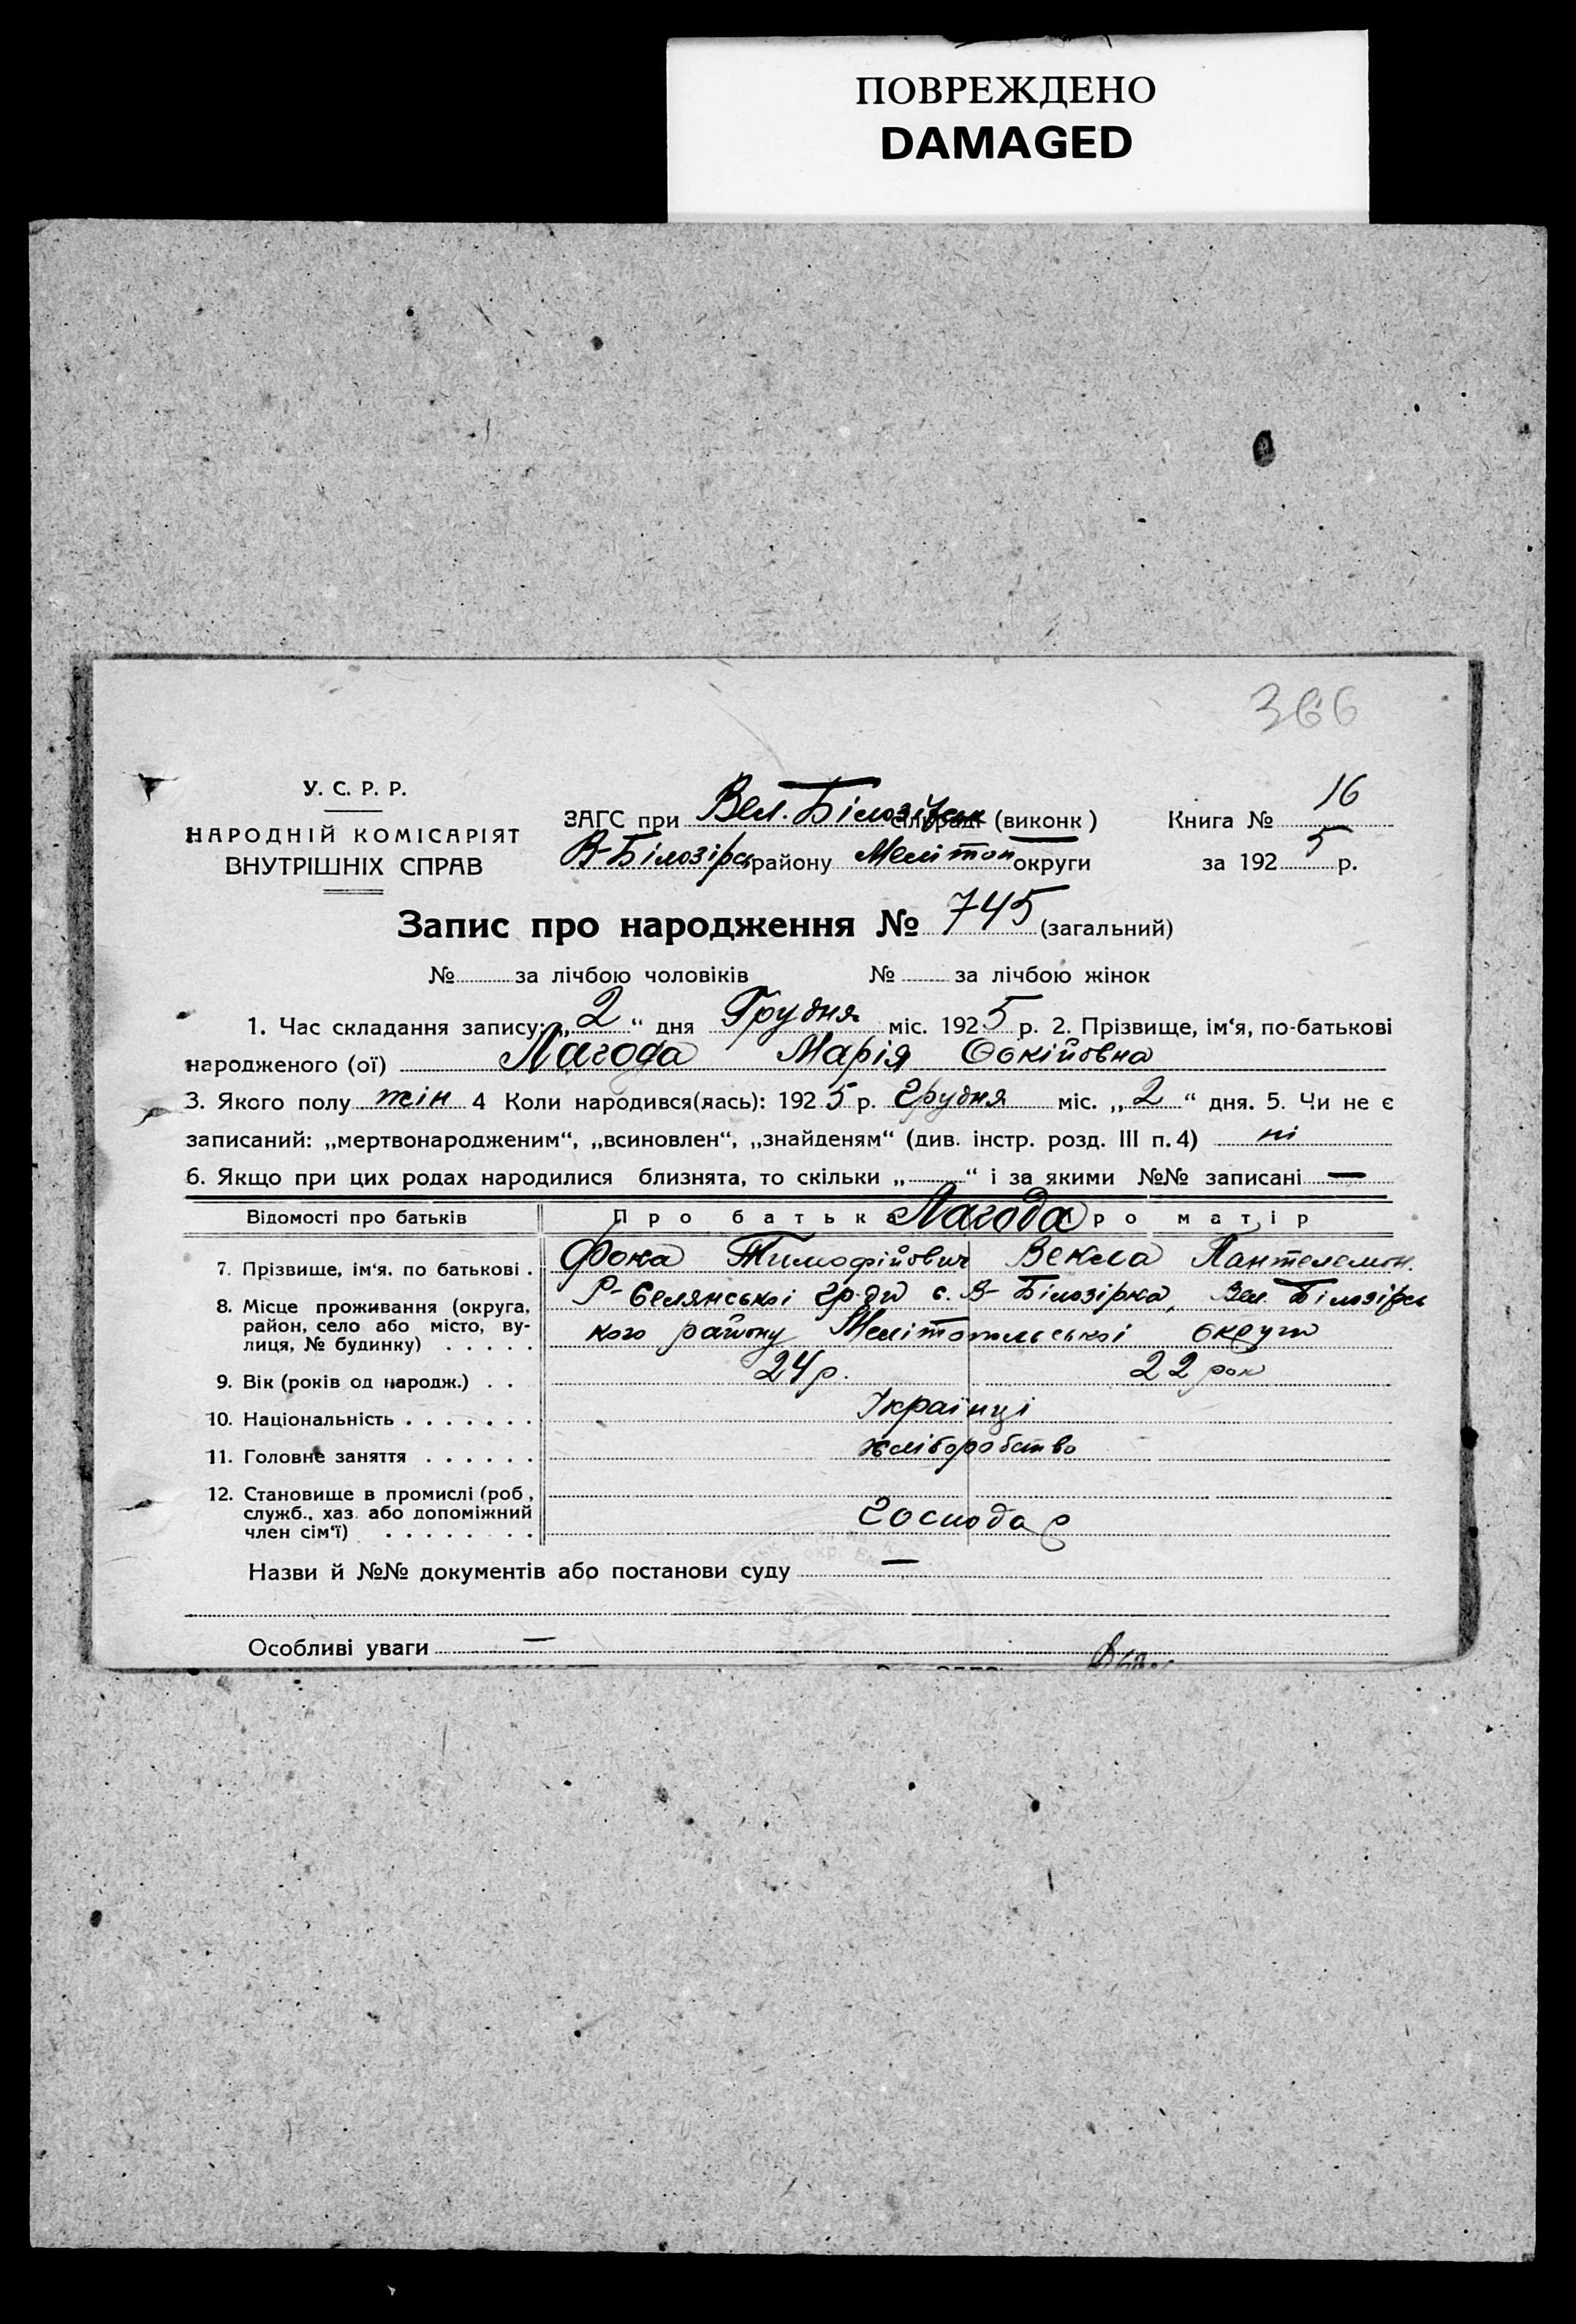 ПОВРЕЖДЕНО
DAMAGED
366
У. С. Р. Р.
НАРОДНІЙ КОМІСАРІЯТ
ВНУТРІШНІХ СПРАВ
ЗАГС при Вел. Білозірськ сільраді (виконк) Книга № 16
В-Білозірс району Мелітоп округи за 1925 р.
Запис про народження № 745 (загальний)
№ за лічбою чоловіків № за лічбою жінок
1. Час складання запису: „2“ дня Грудня міс. 1925 р. 2. Прізвище, ім‘я, по-батькові
народженого (ої) Лагода Марія Фокійовна
3. Якого полу жін 4 Коли народився(лась): 1925 р. Грудня міс. „2“ дня. 5. Чи не є
записаний: „мертвонародженим“, „всиновлен“, „знайденям“ (див. інстр. розд. III п. 4) ні
6. Якщо при цих родах народилися близнята, то скільки „ “ і за якими №№ записані —
Відомості про батьків Про батька Лагода Про матір
7. Прізвище, ім‘я, по батькові . Фока Тимофійович Векла Пантелемон.
8. Місце проживання (округа, район, село або місто, вулиця, № будинку) . . . . . Р-Селянської гр-ди с. В-Білозірка, Вел. Білозірсь
кого району Мелітопольської округи
9. Вік (років од народж.) . . 24 р. 22 рок
10. Національність . . . . . . . Українці
11. Головне заняття . . . . . . хліборобство
12. Становище в промислі (роб., служб., хаз. або допоміжний член сім‘ї) . . . . . . . . господар
Назви й №№ документів або постанови суду —
Особливі уваги —